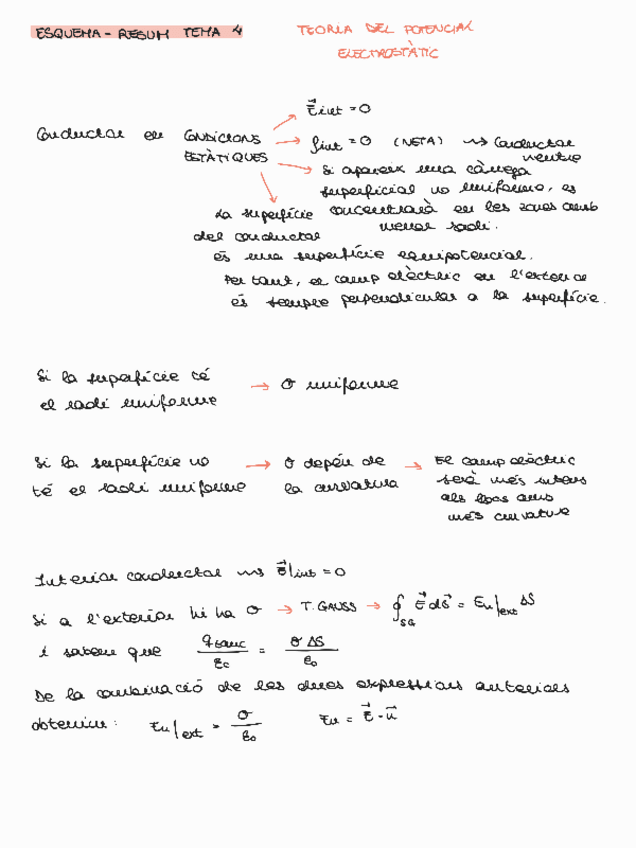 ESQUEMA - RESUM TEMA 4
TEORIA DEL POTENCIAL
ELECTROSTÀTIC
Conductor en CONDICIONS
ESTÀTIQUES
→ E⃗int = 0
→ ρint = 0 (NETA) ⇝ Conductor
neutre
→ Si apareix una càrrega
superficial no uniforme, es
concentrarà en les zones amb
menor radi.
La superfície
del conductor
és una superfície equipotencial.
Per tant, el camp elèctric en l'exterior
és sempre perpendicular a la superfície.
Si la superfície té
el radi uniforme
→ σ uniforme
Si la superfície no
té el radi uniforme
→ σ depén de
la curvatura
→ El camp elèctric
serà més intens
als llocs amb
més curvatura
Interior conductor ⇝ E⃗|int = 0
Si a l'exterior hi ha σ → T. GAUSS → ∮SG E⃗ dS⃗ = En|ext ΔS
i sabem que qtanc/ε0 = σ ΔS/ε0
De la combinació de les dues expressions anteriors
obtenim: En|ext = σ/ε0 En = E⃗ · n⃗